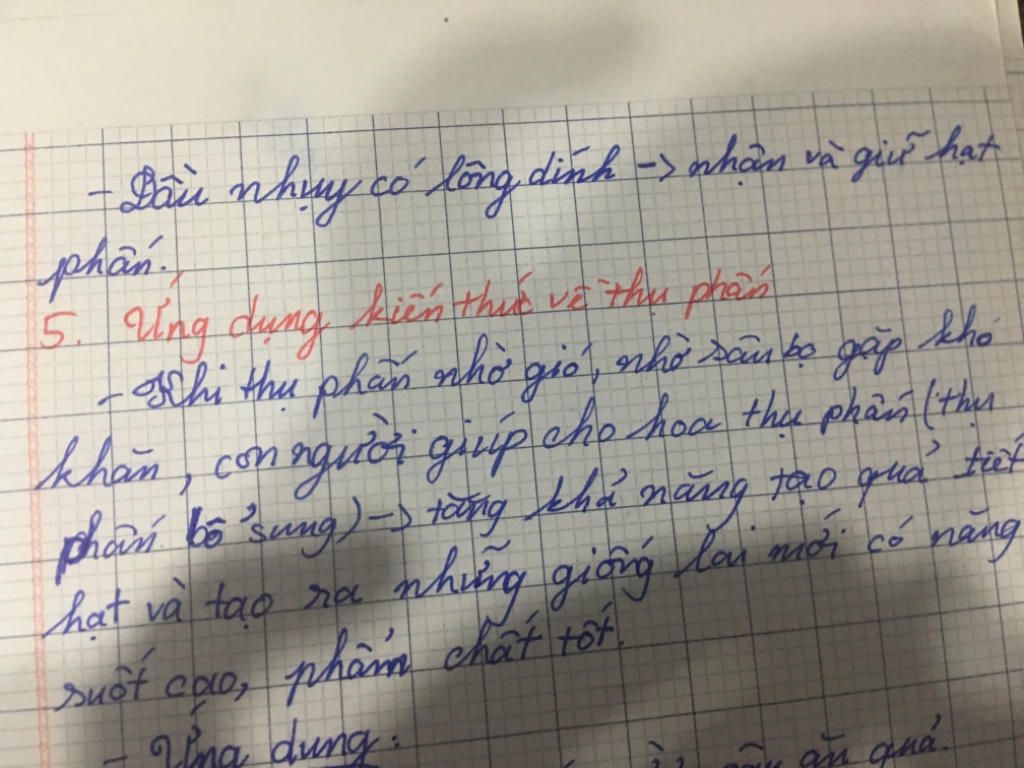 - Đầu nhụy có lông dính -> nhận và giữ hạt
phấn.
5. Ứng dụng kiến thức về thụ phấn
- Khi thụ phấn nhờ gió, nhờ sâu bọ gặp khó
khăn, con người giúp cho hoa thụ phấn (thụ
phấn bổ sung) -> tăng khả năng tạo quả tiết
hạt và tạo ra những giống lai mới có năng
suất cao, phẩm chất tốt.
- Ứng dụng:
ăn quả.